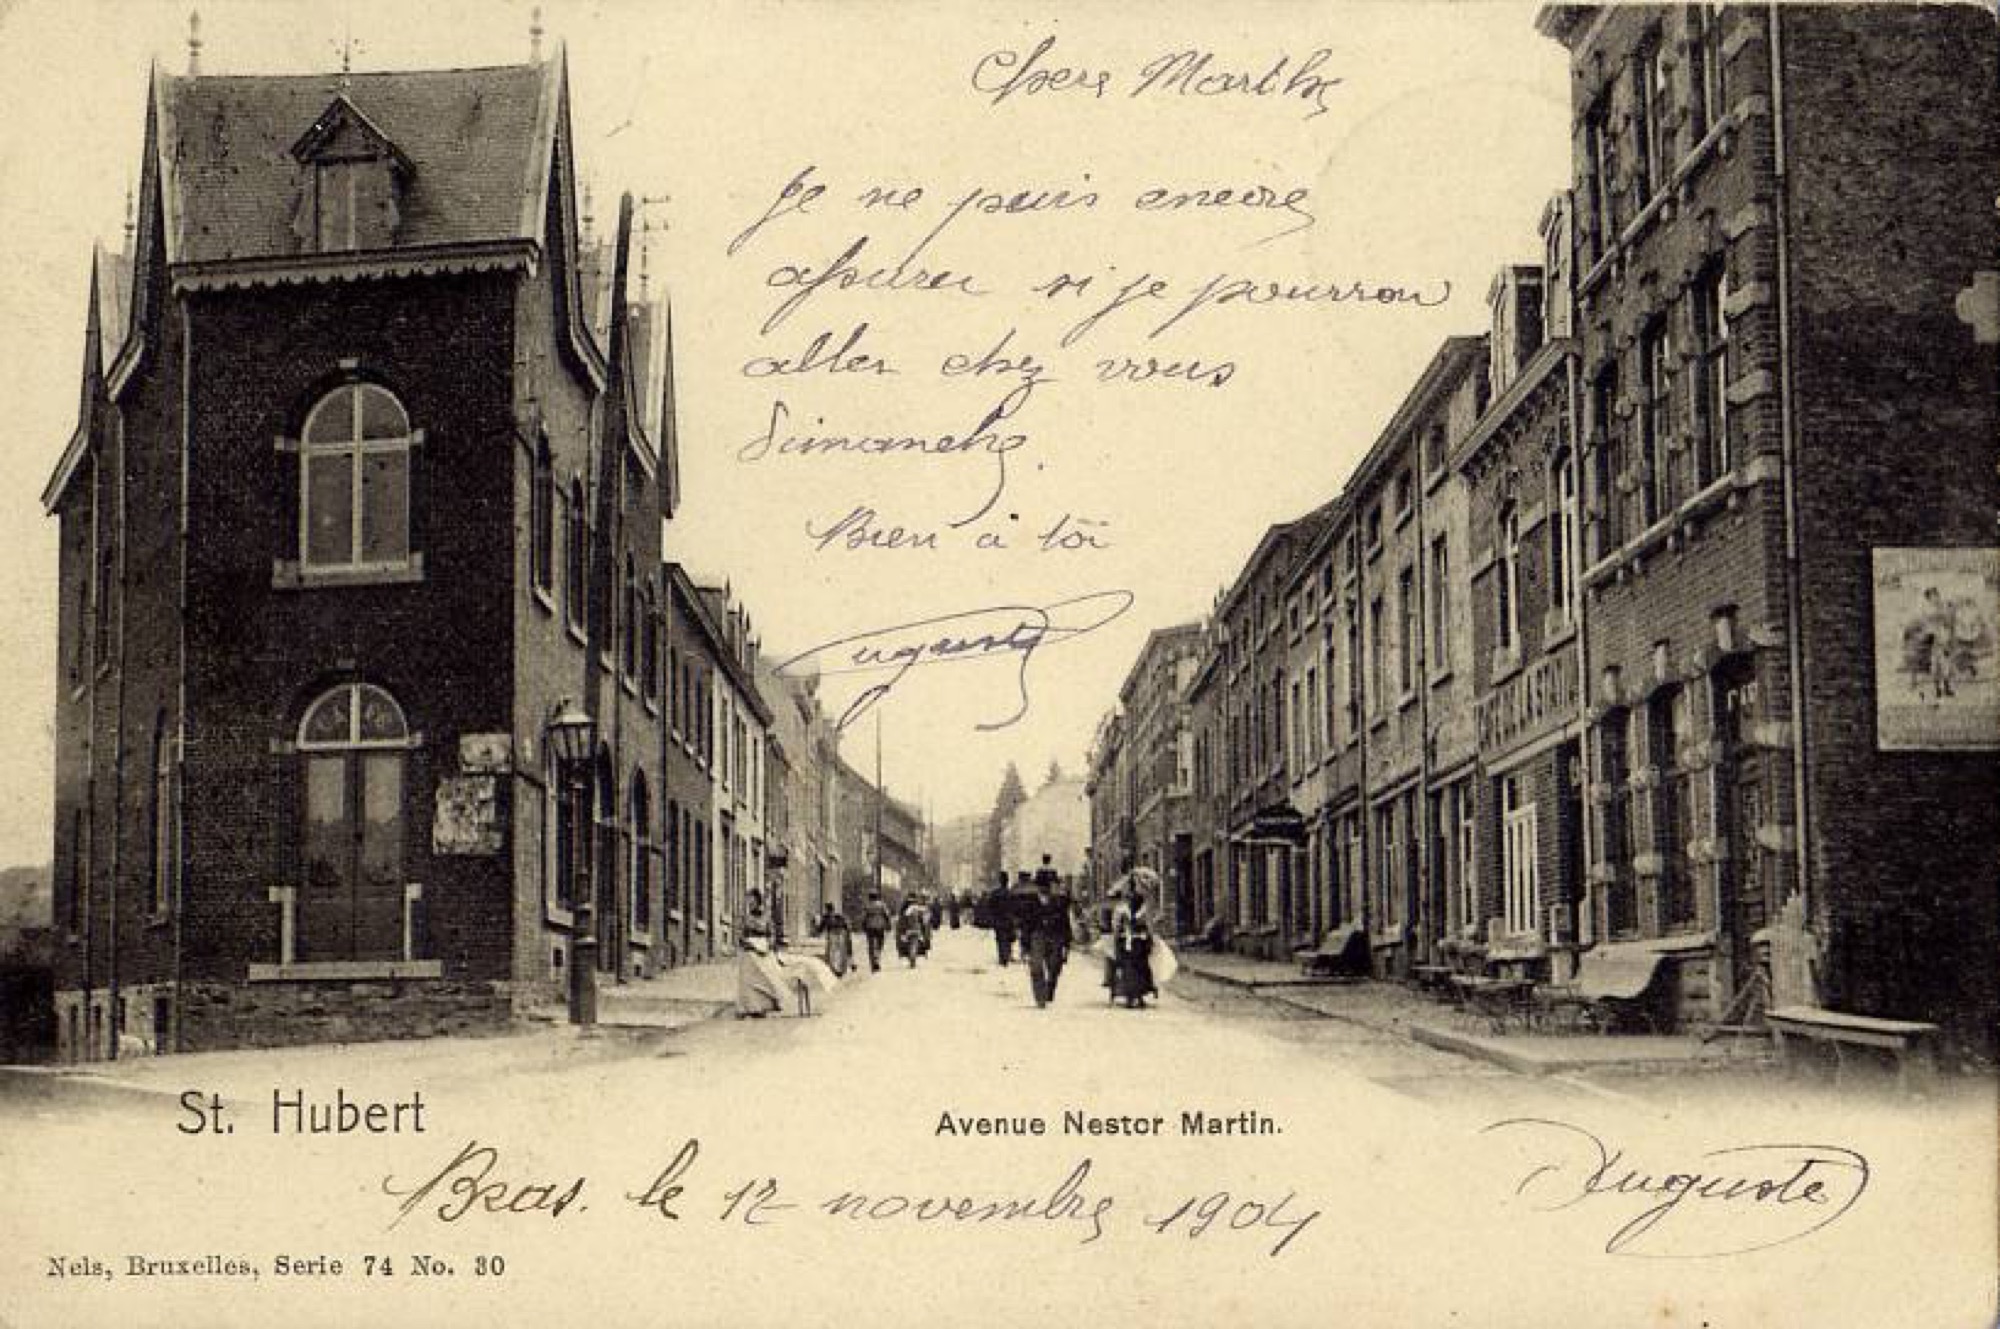 Chère Marthe
Je ne puis encore
assurer si je pourrai
aller chez vous
Dimanche.
Bien à toi
Auguste
St. Hubert
Avenue Nestor Martin.
Bras. le 12 novembre 1904
Auguste
Nels, Bruxelles, Serie 74 No. 30